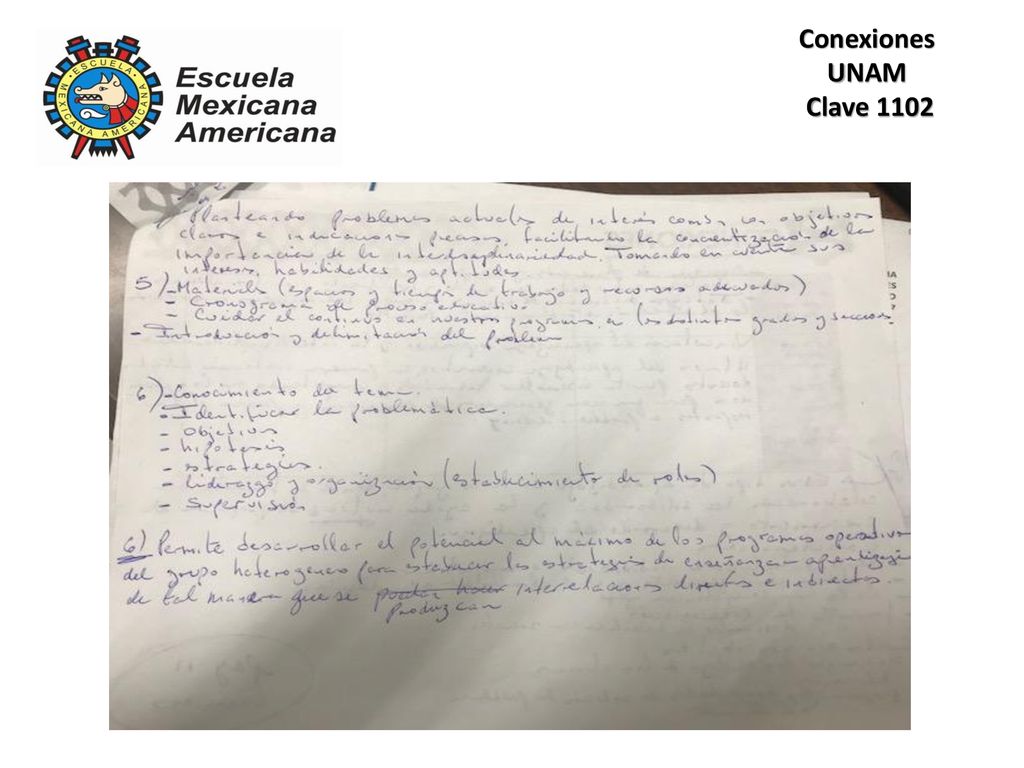 Conexiones
UNAM
Clave 1102
ESCUELA
MEXICANA AMERICANA
Escuela
Mexicana
Americana
Planteando problemas actuales de interés común, con objetivos
claros e indicaciones precisas, facilitando la concientización de la
importancia de la interdisciplinariedad. Tomando en cuenta sus
intereses, habilidades y aptitudes.
5) - Materiales (espacios y tiempos de trabajo y recursos adecuados)
- Cronograma de proceso educativo
- Cuidar el continuo en nuestros programas en los distintos grados y secciones
- Introducción y delimitación del problema
6) - Conocimiento del tema.
- Identificar la problemática.
- Objetivos
- hipotesis
- estrategias.
- liderazgo y organización (establecimiento de roles)
- Supervisión
6) Permite desarrollar el potencial al máximo de los programas operativos
del grupo heterogeneo para establecer las estrategias de enseñanza aprendizaje
de tal manera que se interrelaciones directas e indirectas.
produzcan